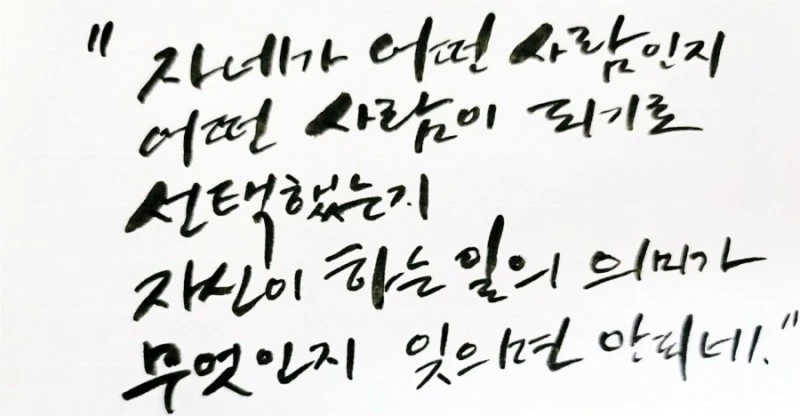 "자네가 어떤 사람인지
어떤 사람이 되기로
선택했는지
자신이 하는 일의 의미가
무엇인지 잊으면 안되네."